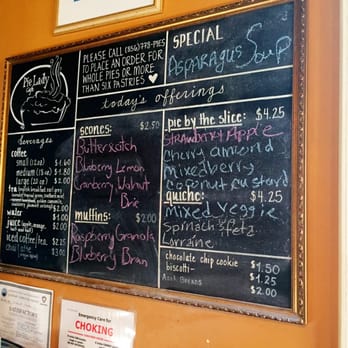 Pie Lady
Cafe
PLEASE CALL (856)779-PIES
TO PLACE AN ORDER FOR
WHOLE PIES OR MORE
THAN SIX PASTRIES
SPECIAL
Asparagus Soup
today's offerings
beverages
coffee
small (12 oz) $1.60
medium (16 oz) $1.80
large (20 oz) $2.00
tea
water
juice
iced coffee/tea $2.25
chai latte $3.00
scones: $2.50
Butterscotch
Blueberry Lemon
Cranberry Walnut
Brie
muffins: $2.00
Raspberry Granola
Blueberry Bran
pie by the slice: $4.25
Strawberry Apple
Cherry almond
mixed berry
coconut custard
quiche: $4.25
Mixed veggie
Spinach feta
Lorraine
chocolate chip cookie $1.50
biscotti $1.25
$2.00
Emergency Care for
CHOKING
SATISFACTORY